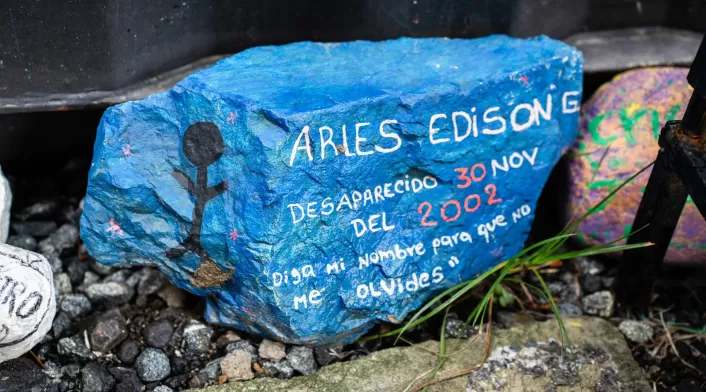 ARLES EDISON G
DESAPARECIDO 30 NOV
DEL 2002
"Diga mi Nombre para que no
me olvides"
TRO